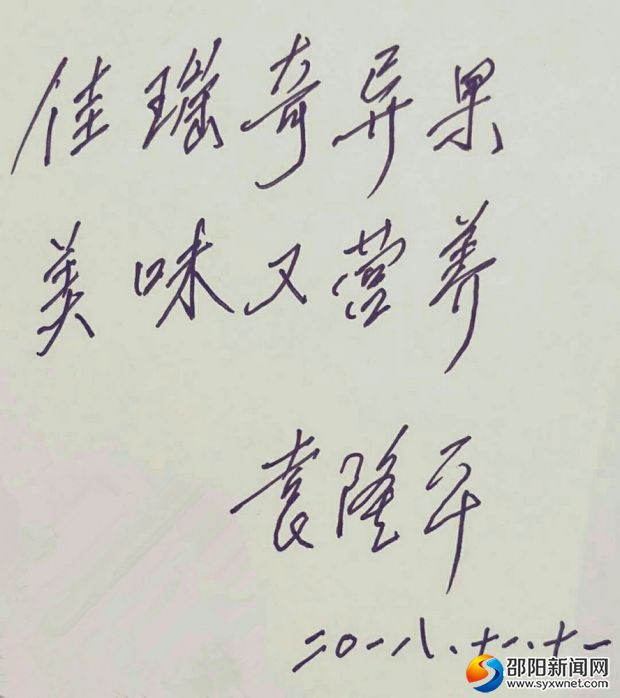 佳瑶奇异果
美味又营养
袁隆平
二〇一八、十一、十一
邵阳新闻网
www.syxwnet.com